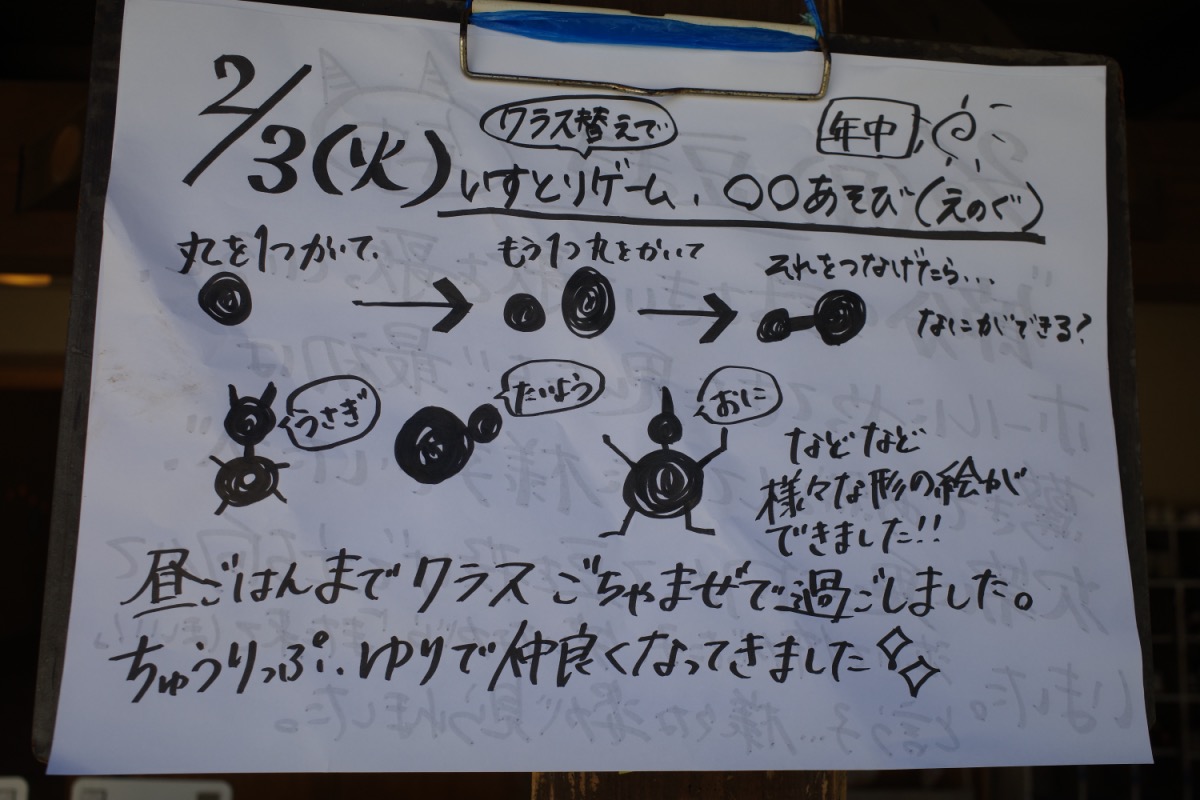 2/3(火)
クラス替えで
年中
いすとりゲーム、〇〇あそび(えのぐ)
丸を1つかいて、
もう1つ丸をかいて
それをつなげたら...
なにができる?
うさぎ
たいよう
おに
などなど
様々な形の絵が
できました!!
昼ごはんまでクラスごちゃまぜで過ごしました。
ちゅうりっぷ、ゆりで仲良くなってきました